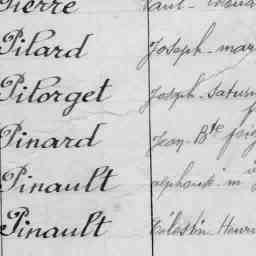 Pierre
Pilard Joseph-mar
Pilorget Joseph-satur
Pinard Jean-Bte
Pinault alphonse-m
Pinault Célestin-Henri